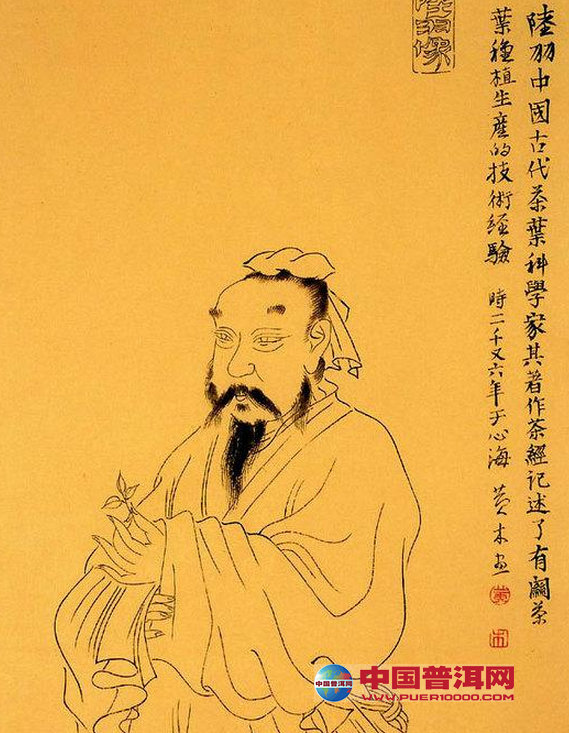 陸羽像
陸羽中國古代茶葉科學家其著作茶經記述了有關茶
葉種植生產的技術經驗 時二千又六年于心海 黄木画
黄
木
中国普洱网
中国普洱网
WWW.PUER10000.COM